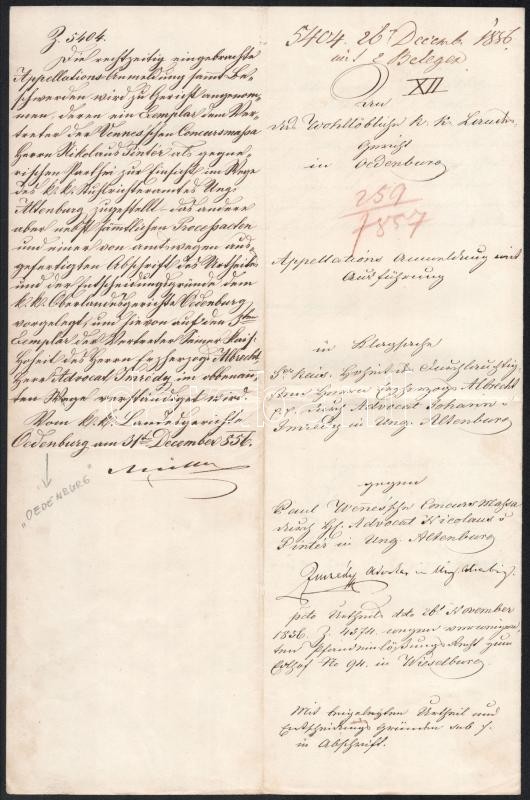 Z. 5404.
Die rechtzeitig eingebrachte
Appellations Anmeldung sammt Be-
schwerden wird zu Gericht angenom-
men, deren ein Exemplar dem Ver-
treter der Concursmassa
Herrn Nikolaus Pinter als gegne-
rischen Parthei zur Einsicht im Wege
des k.k. Stuhlrichteramtes Ung.
Altenburg zugestellt, das andere
aber nebst sämmtlichen Processacten
und einer von amtswegen aus-
gefertigten Abschrift des Urtheiles
und der Entscheidungsgründe dem
k.k. Oberlandesgerichte Oedenburg
vorgelegt, und hievon auf dem 3ten
Exemplar der Vertreter Seiner Kais.
Hoheit des Herrn Erzherzogs Albrecht
Herr Advocat Imrédy im obbenan-
ten Wege verständiget wird.
Vom k.k. Landesgerichte
Oedenburg am 31ten December 856.
Müller
"OEDENBURG"
5404. 28 Decemb. 1856
mit 2 Beilagen
XII
An
das Wohllöbliche k. k. Landes
Gericht
in Oedenburg
259
1857
Appellations Anmeldung mit
Ausführung
in Klagsache
Sr. Kais. Hoheit des Durchlauchtig-
sten Herrn Erzherzogs Albrecht
durch Advocat Johann
Imrédy in Ung. Altenburg
gegen
Paul Concurs Massa
durch H. Advocat Nicolaus
Pintér in Ung. Altenburg
Imrédy
pcto Urtheils dto 26t November
1856. Z. 4374. wegen
ten Pfandeinlösungs Recht zum
No 94. in Wieselburg
Mit beigelegten Urtheil und
Entscheidungs Gründen sub
in Abschrift.